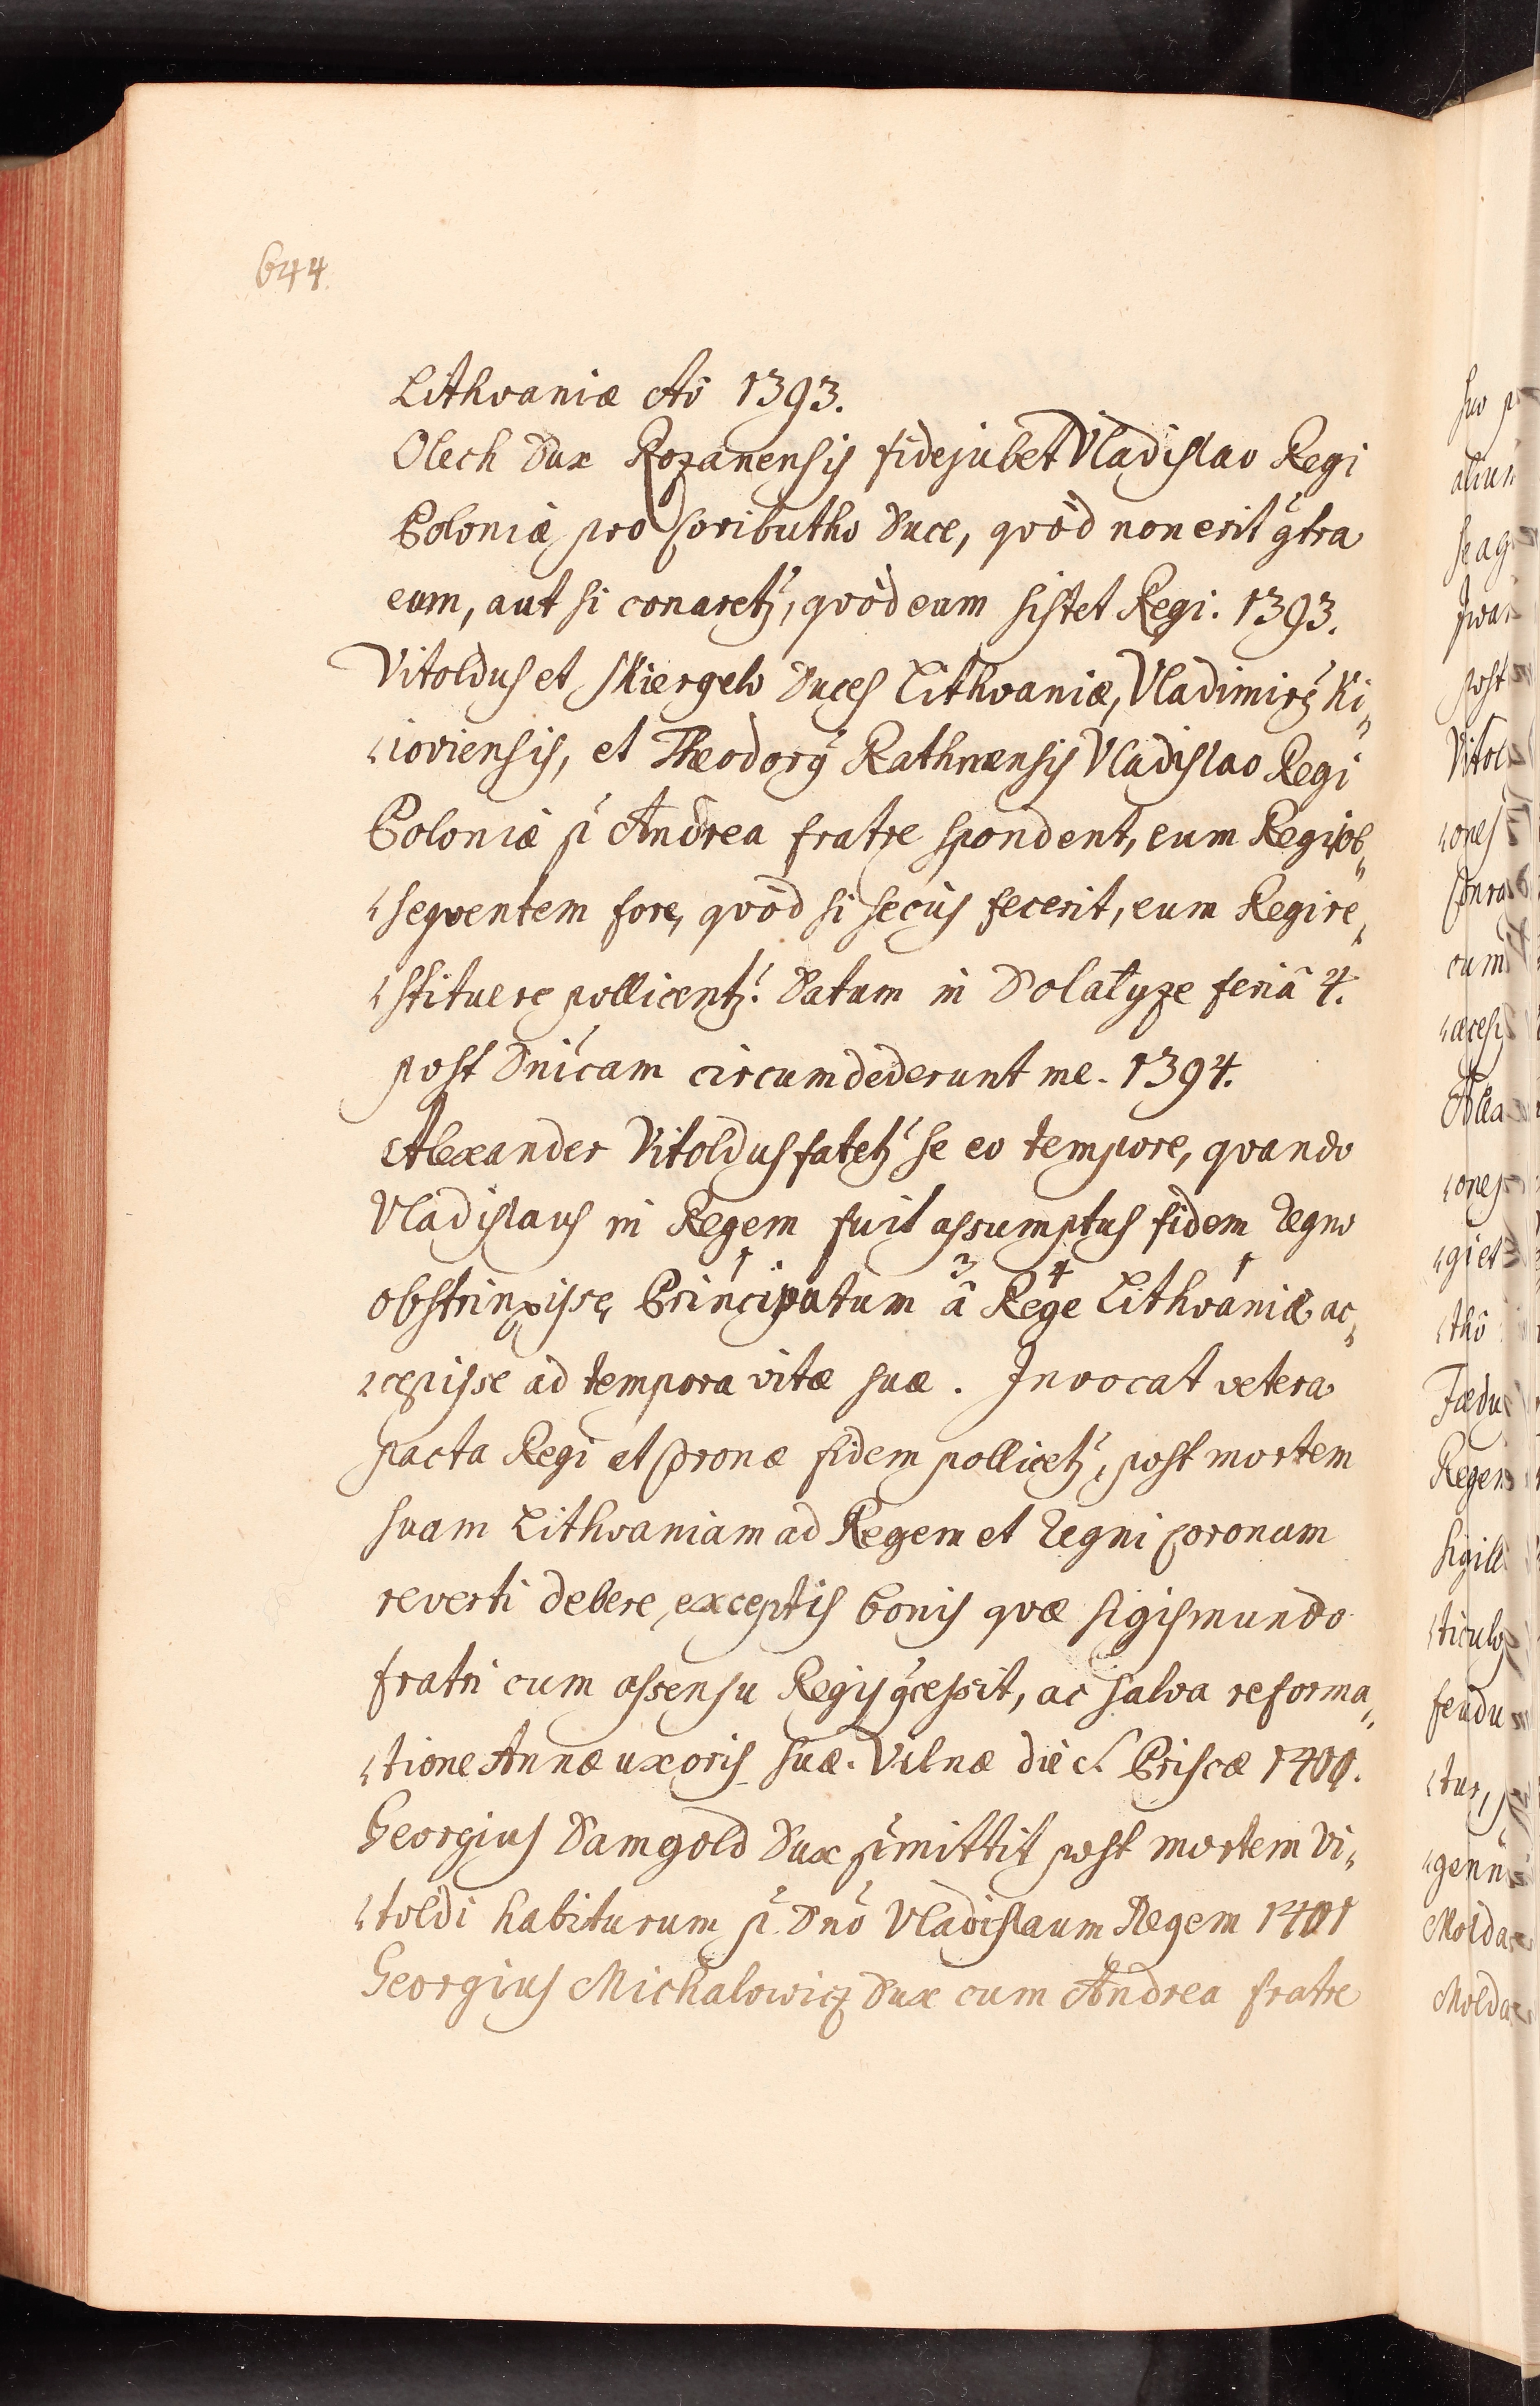 644.
Lithvaniæ Aō 1393.
Olech Dux Rozanensis fidejubet Vladislao Regi
Poloniæ pro Coributho Duce, qvòd non erit 9tra
eum, aut si conaretʒ, qvòd eum sistet Regi. 1393.
Vitoldus et Skiergelo Duces Lithvaniæ, Vladimirꝰ Ki„
„ioviensis, et Theodorꝰ Rathnænsis Vladislao Regi
Poloniæ p̄ Andrea fratre spondent, eum Regi ob„
„seqventem fore, qvòd si secùs fecerit, eum Regi re„
„stituere pollicentʒ. Datum in Dolatyze feriâ 4.
post Dn̄icam circumdederunt me. 1394.
Alexander Vitoldus fatetʒ se eo tempore, qvando
Vladislaus in Regem fuit assumptus fidem Regno
obstrinxisse, Principatum â Rege Lithvaniæ ac„
1 3 4 1
„cepisse ad tempora vitæ suæ. Invocat vetera
pacta Regi et Coronæ fidem pollicetʒ, post mortem
suam Lithvaniam ad Regem et Regni Coronam
reverti debere, exceptis bonis qvæ Sigismundo
fratri cum assensu Regis 9cessit, ac salva reforma„
„tione Annæ uxoris suæ. Vilnæ die S. Priscæ 1401.
Georgius Damgold Dux p̄mittit post mortem Vi„
„toldi habiturum p̄ Dn̄o Vladislaum Regem 1401
Georgius Michalowicz Dux cum Andrea fratre